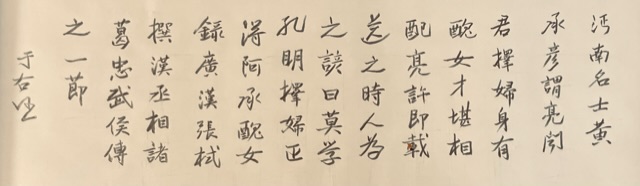 沔南名士黄
承彦謂亮聞
君擇婦身有
醜女才堪相
配亮許即載
送之時人為
之諺曰莫学
孔明擇婦正
得阿承醜女
録廣漢張栻
撰漢丞相諸
葛忠武侯傳
之一節
于右任